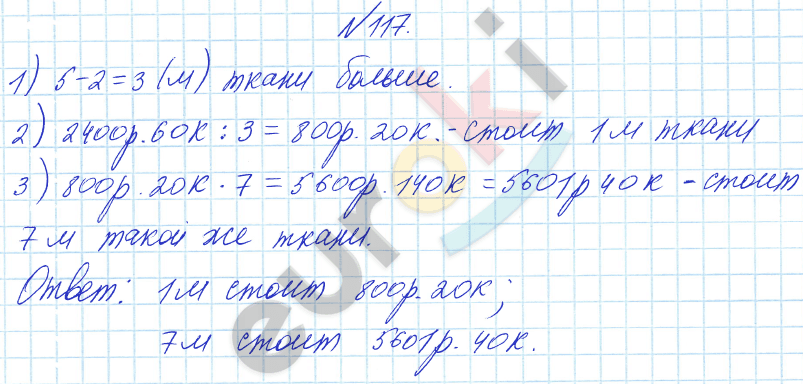 №117.
1) 5-2=3 (м) ткани больше.
2) 2400р.60к : 3 = 800р. 20к. - стоит 1м ткани
3) 800р. 20к · 7 = 5600р. 140к = 5601р 40к - стоит
7м такой же ткани.
Ответ: 1м стоит 800р. 20к;
7м стоит 5601р. 40к.
euroki